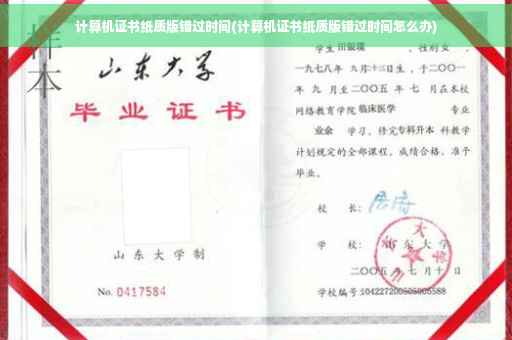 计算机证书纸质版错过时间(计算机证书纸质版错过时间怎么办)
样本
山东大学
毕业证书
山东大学制
No. 0417584
学生 田银瑞 ，性别女，
一九七八年 九月十二日生，于二〇〇一
年 九 月至二〇〇五 年 七 月在本校
网络教育学院 临床医学 专业
业余 学习，修完专科升本 科教学
计划规定的全部课程，成绩合格，准予
毕业。
校 长：
学 校：山东大学
二〇〇五年七月十日
学校编号:104227200505005588